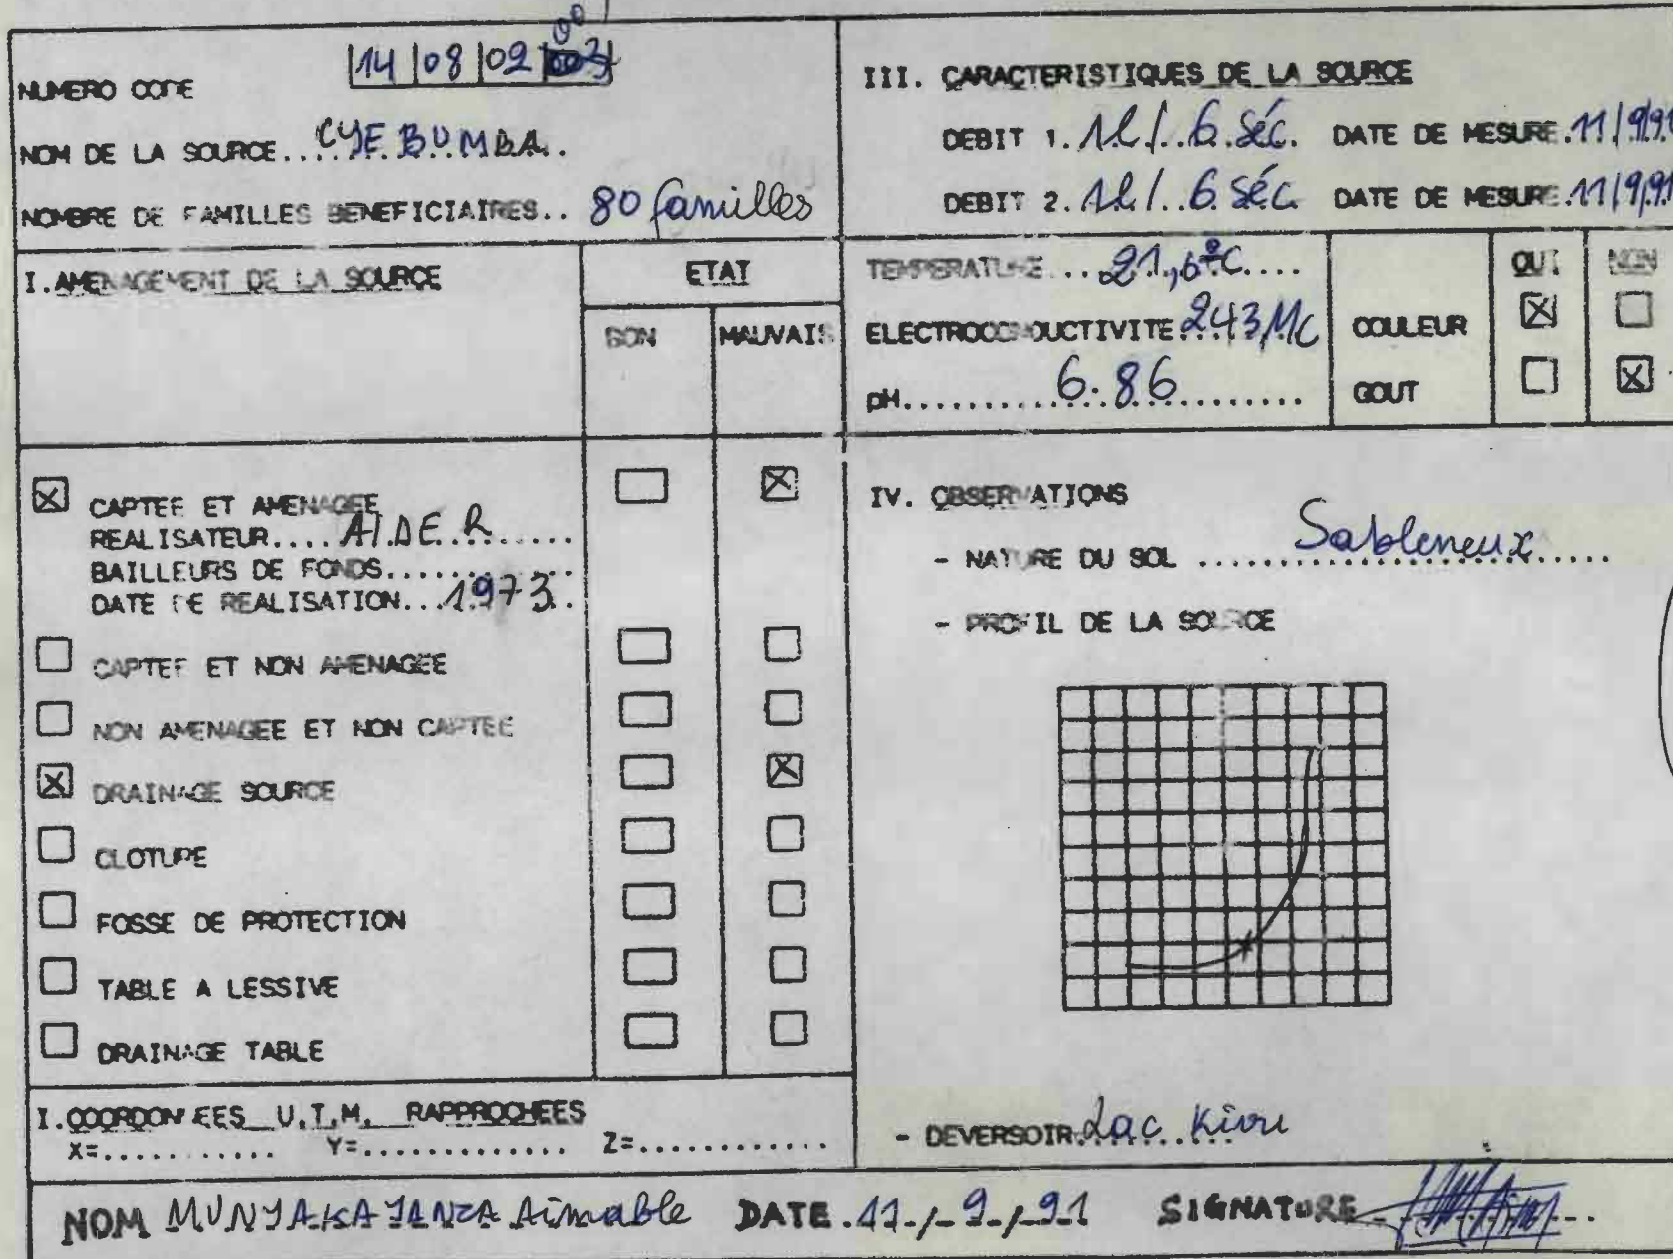 NUMERO CODE |14|08|02|
NOM DE LA SOURCE...CYEBUMBA.
NOMBRE DE FAMILLES BENEFICIAIRES.. 80 familles
I. AMENAGEMENT DE LA SOURCE
ETAT
BON MAUVAIS
☒ CAPTEE ET AMENAGEE ☐ ☒
REALISATEUR....AIDER......
BAILLEURS DE FONDS...........
DATE DE REALISATION...1973..
☐ CAPTEE ET NON AMENAGEE ☐ ☐
☐ NON AMENAGEE ET NON CAPTEE ☐ ☐
☒ DRAINAGE SOURCE ☐ ☒
☐ CLOTURE ☐ ☐
☐ FOSSE DE PROTECTION ☐ ☐
☐ TABLE A LESSIVE ☐ ☐
☐ DRAINAGE TABLE ☐ ☐
I. COORDONNEES U.T.M. RAPPROCHEES
X=........... Y=............. Z=.............
III. CARACTERISTIQUES DE LA SOURCE
DEBIT 1. 1l/..6.Séc. DATE DE MESURE.11/9/91
DEBIT 2. 1l/..6.Séc. DATE DE MESURE.11/9/91
TEMPERATURE...21,6°C....
ELECTROCONDUCTIVITE..243 MC
pH...........6.86..........
OUI NON
COULEUR ☒ ☐
GOUT ☐ ☒
IV. OBSERVATIONS
- NATURE DU SOL ........Sableneux.....
- PROFIL DE LA SOURCE
- DEVERSOIR.Lac Kivu
NOM MUNYAKAJANZA Aimable DATE.11-/-9-/-91 SIGNATURE